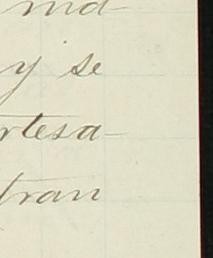 md-
y se
rtesa-
tran